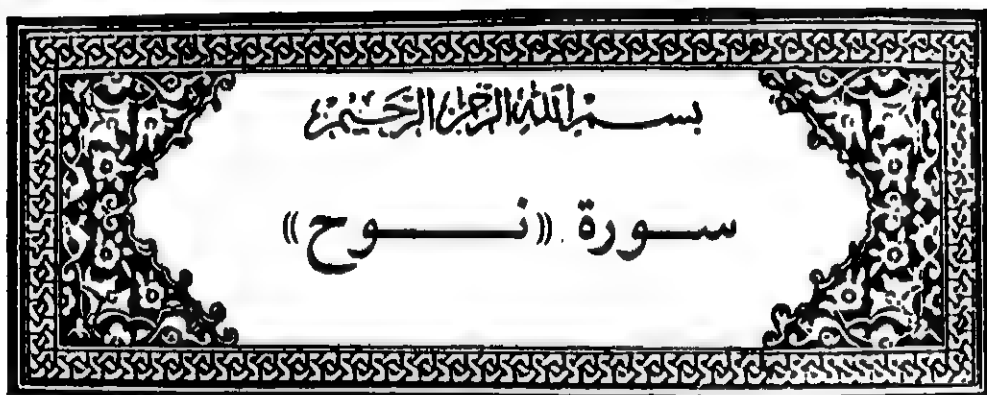 بسم الله الرحمن الرحيم
سورة «نوح»